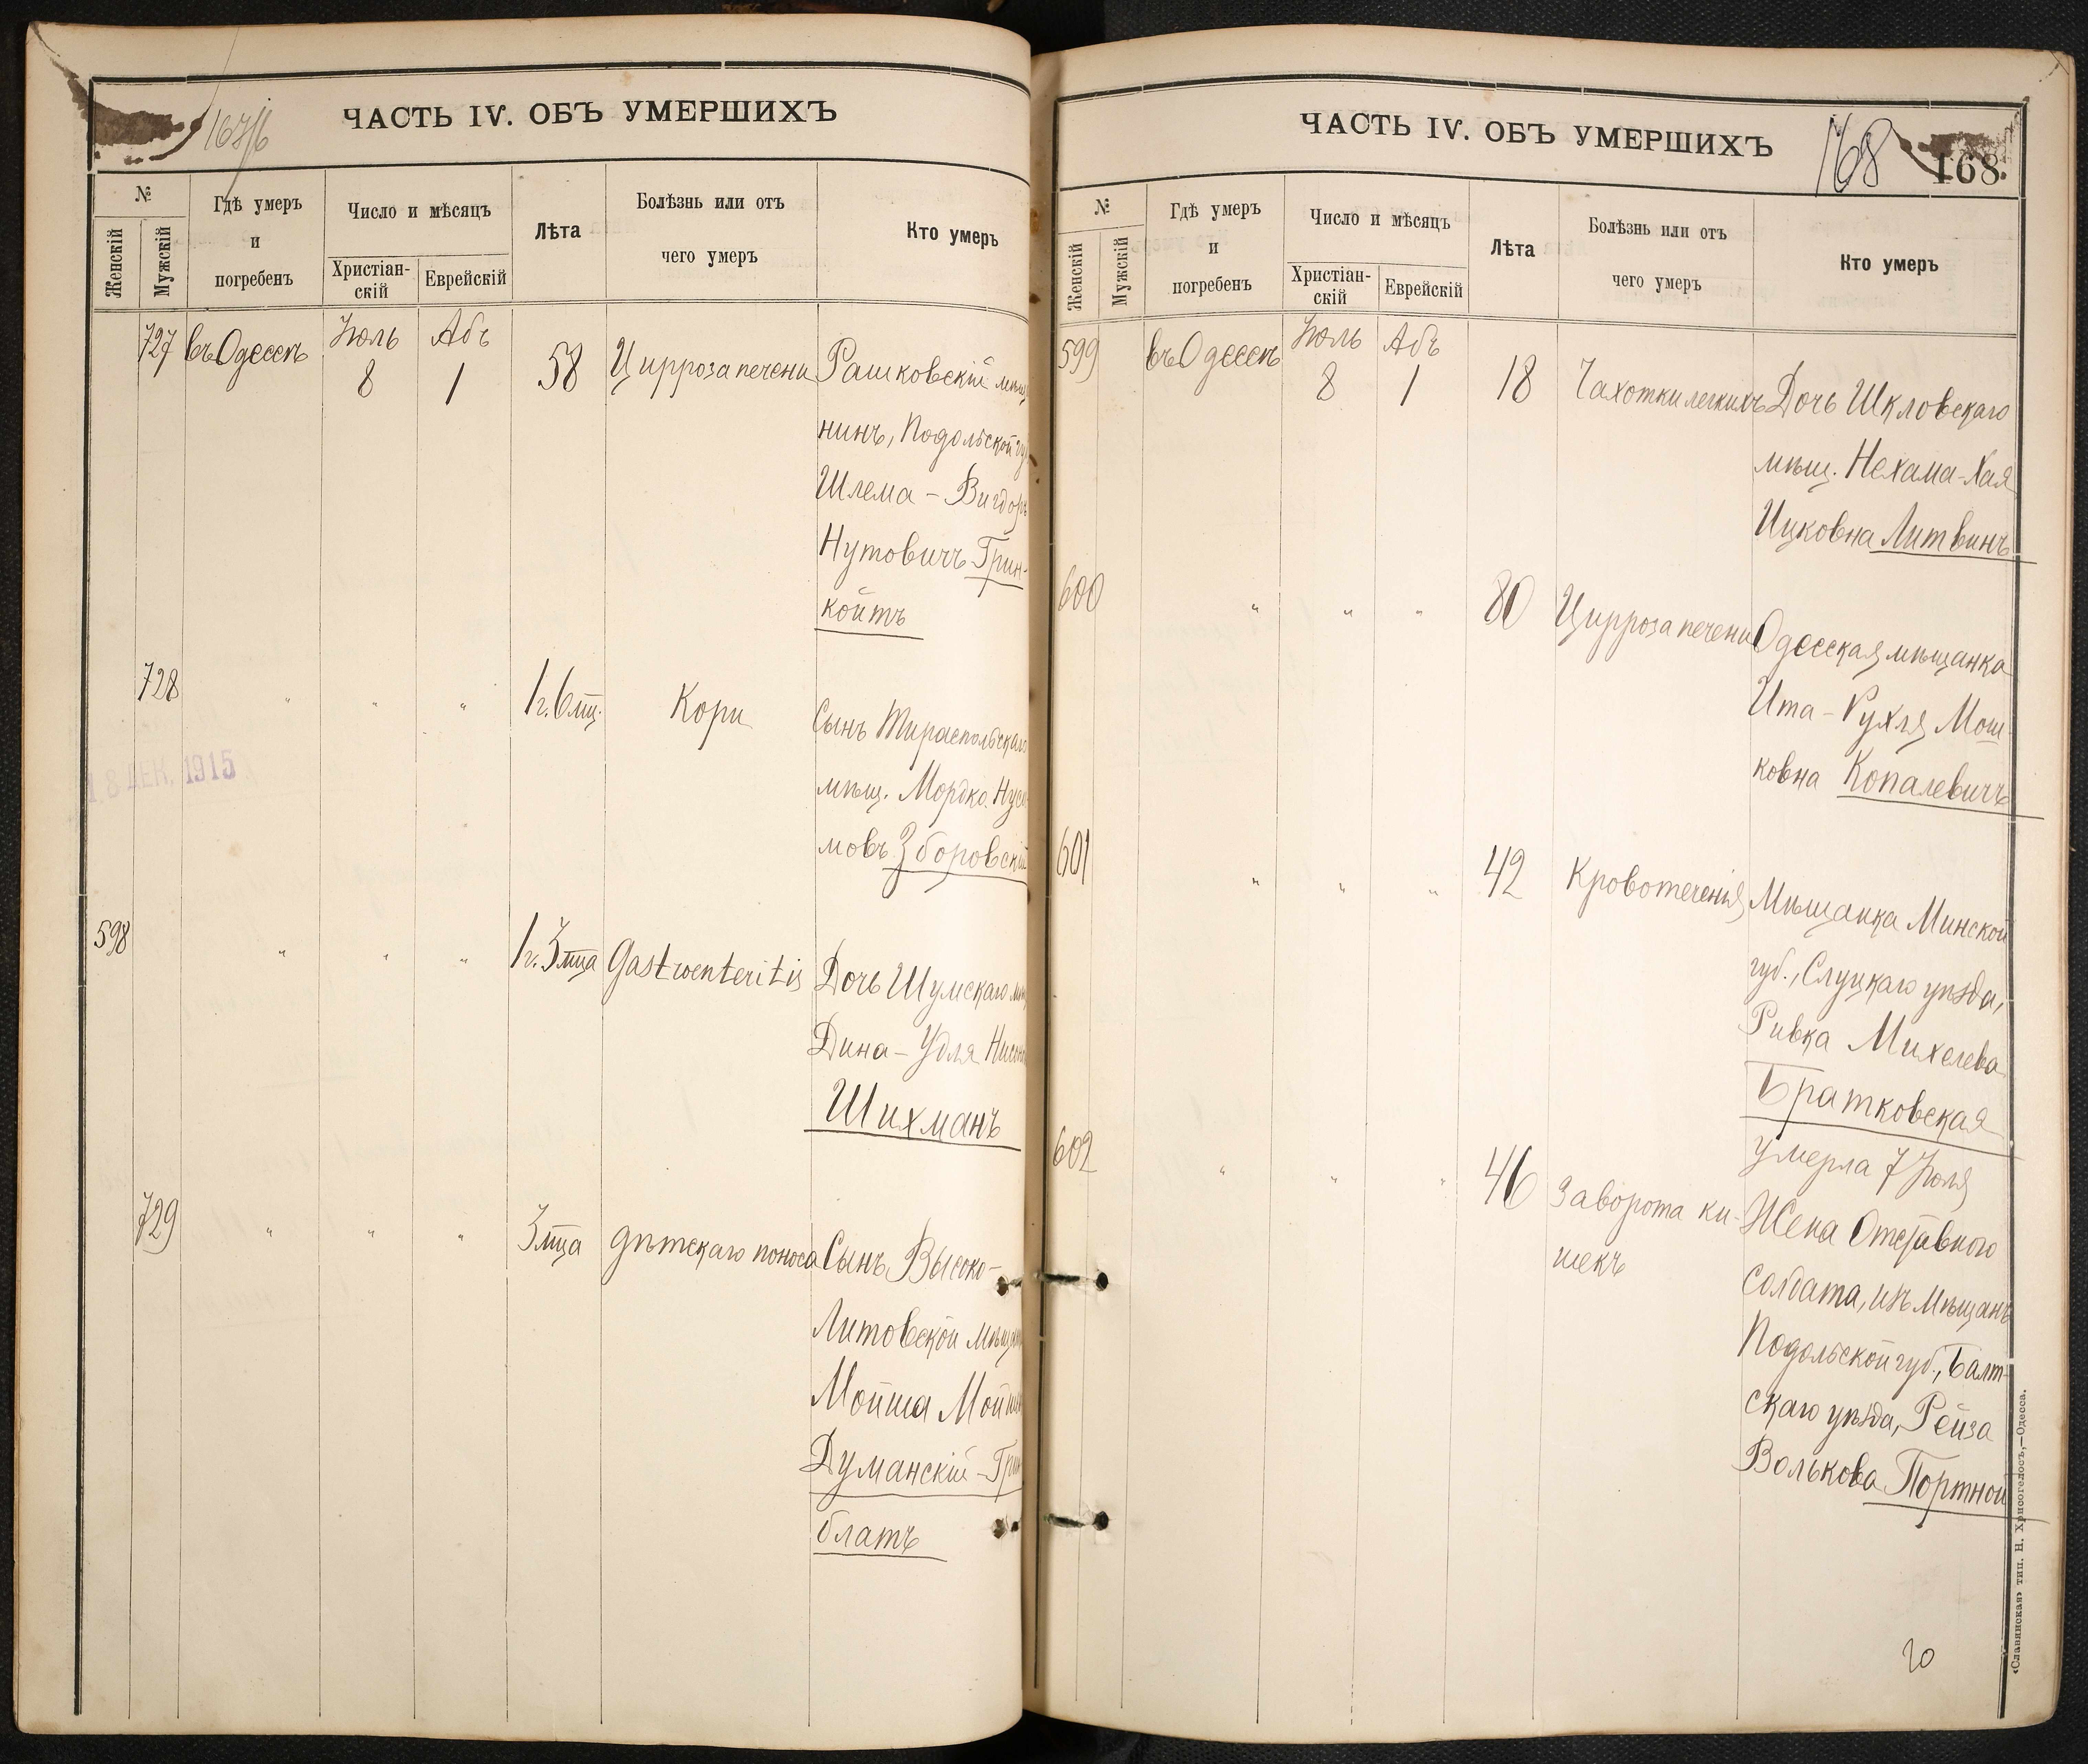 ЧАСТЬ IV. ОБЪ УМЕРШИХЪ
№
Женскій
Мужскій
Гдѣ умеръ
и
погребенъ
Число и мѣсяцъ
Христіан-
скій
Еврейскій
Лѣта
Болѣзнь или отъ
чего умеръ
Кто умеръ
727 въ Одессѣ Іюль 8 Абъ 1 58 Цирроза печени Рашковскій
нинъ, Подольской
Шлема - Вигдоръ
Нутовичъ Грин-
койтъ
728 " " " 1 г. 6 мц. Кори Сынъ Тираспольскаго
мѣщ. Мордко
мовъ Зборовскій
18 ДЕК. 1915
598 " " " 1 г. 3 мца Gastroenteritis Дочь Шумскаго
Дина - Удля
Шихманъ
729 " " " 3 мца дѣтскаго поноса Сынъ Высоко-
Литовской
Мойша
Думанскій -
блатъ
ЧАСТЬ IV. ОБЪ УМЕРШИХЪ
168 168.
№
Женскій
Мужскій
Гдѣ умеръ
и
погребенъ
Число и мѣсяцъ
Христіан-
скій
Еврейскій
Лѣта
Болѣзнь или отъ
чего умеръ
Кто умеръ
599 въ Одессѣ Іюль 8 Абъ 1 18 Чахотки легкихъ Дочь Шкловскаго
мѣщ. Нехама-Хая
Ицковна Литвинъ
600 " " " 80 Цирроза печени Одесская мѣщанка
Ита - Рухля Мош-
ковна Копалевичъ
601 " " " 42 Кровотеченія Мѣщанка Минской
губ., Слуцкаго уѣзда,
Ривка Михелева
Братковская
умерла 7 Іюля
602 " " " 46 Заворота ки- Жена Отставного
шекъ
солдата, изъ мѣщанъ
Подольской губ., Балт-
скаго уѣзда, Рейза
Волькова Портной
20
«Славянская» тип. Н. Хрисогелосъ,—Одесса.